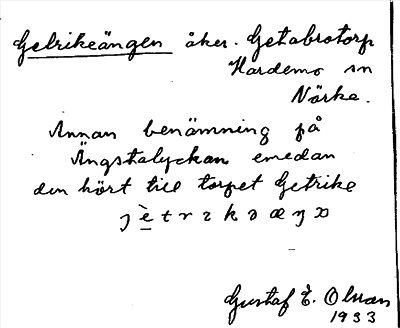 Getrikeängen åker. Getabrotorp
Hardemo sn
Närke.
Annan benämning på
Ängstalyckan emedan
den hört till torpet Getrike
Gustaf E. Olsson
1933